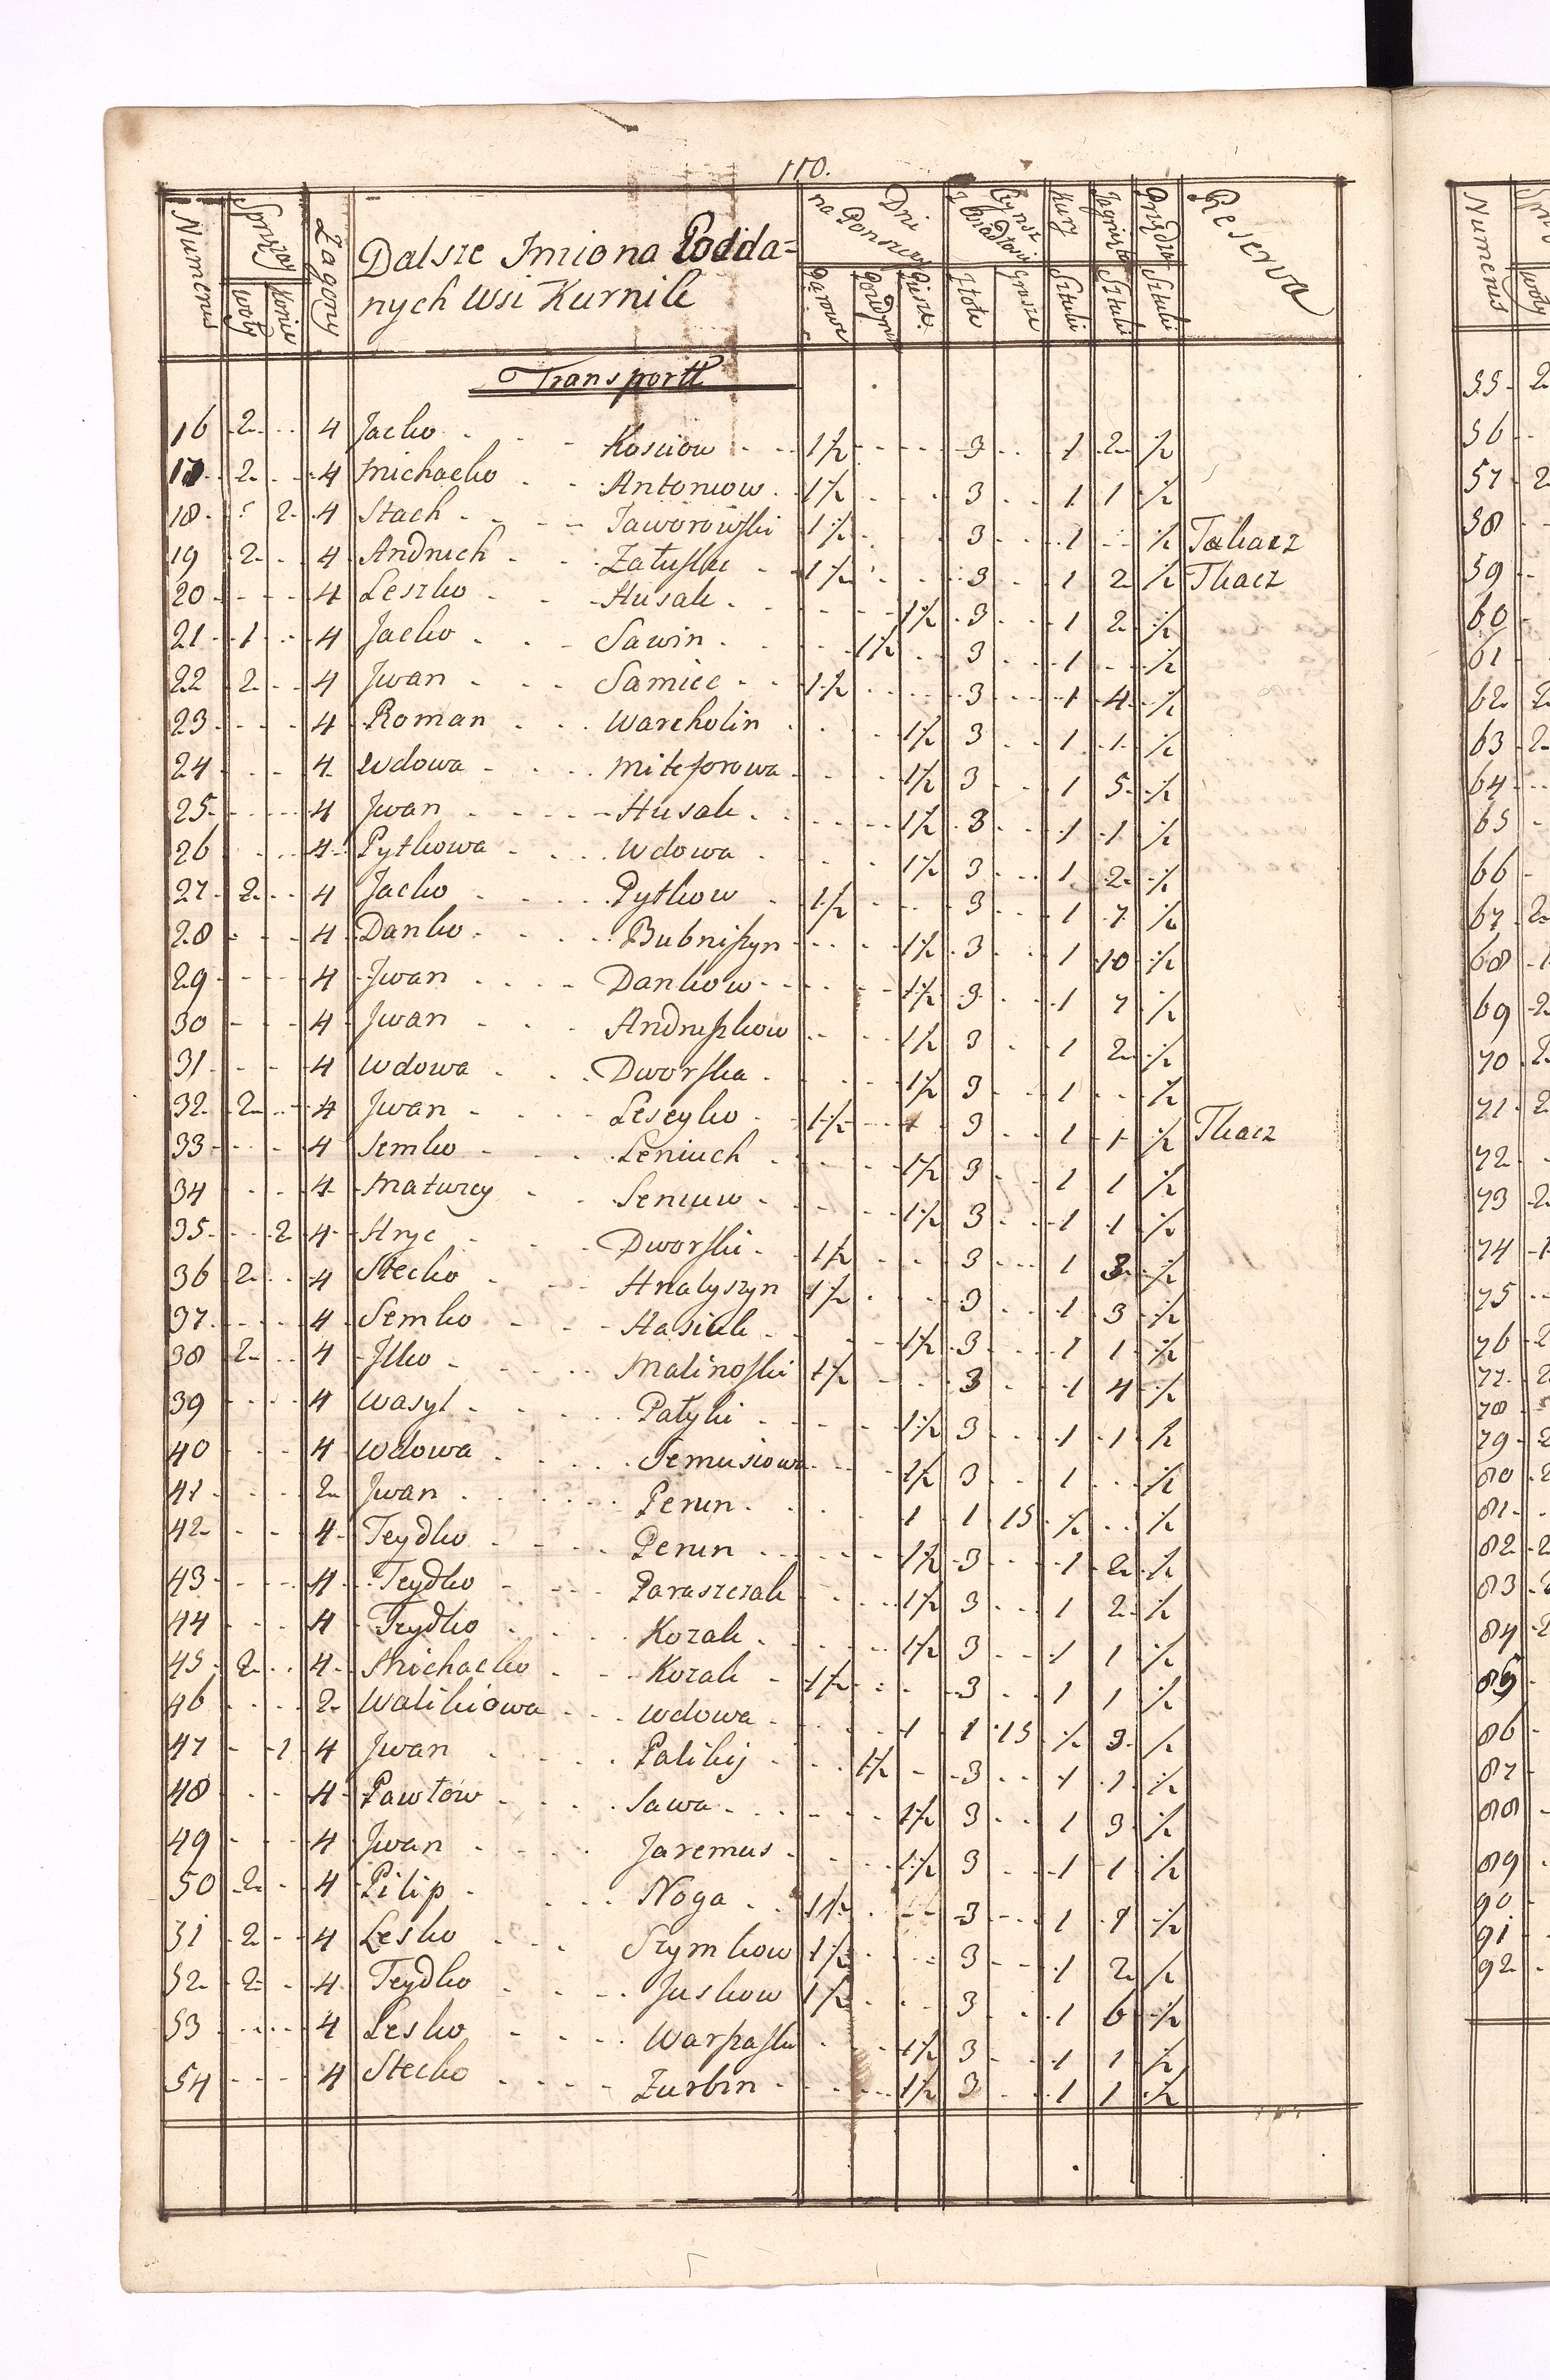 110.
Numerus Sprzęzay Zagony Dalsze Imiona Podda= Dni na Czynsz Kury Jagnięta Reserwa
Woły Konie nych Wsi Kurnik Parowe Piesze Złote Grosze Sztuki Sztuki Sztuki
Transportt
16 2 4 Jacko Kosciow 1½ 3 1 2 ½
17 2 4 Michaeko Antoniow 1½ 3 1 1 ½
18 2 4 Stach Jaworowski 1½ 3 1 ½ Takacz
19 2 4 Andruch Załuski 1½ 3 1 2 ½ Tkacz
20 4 Leszko Husak 1½ 3 1 2 ½
21 1 4 Jacko Sawin 1½ 3 1 ½
22 2 4 Jwan Samiec 1½ 3 1 4 ½
23 4 Roman Warcholin 1½ 3 1 1 ½
24 4 Wdowa Miteforowa 1½ 3 1 5 ½
25 4 Jwan Husak 1½ 3 1 1 ½
26 4 Pytkowa Wdowa 1½ 3 1 2 ½
27 2 4 Jacko Pytkow 1½ 3 1 7 ½
28 4 Danko Bubniszyn 1½ 3 1 10 ½
29 4 Jwan Dankow 1½ 3 1 7 ½
30 4 Jwan Andruszkow 1½ 3 1 2 ½
31 4 Wdowa Dworska 1½ 3 1 ½
32 2 4 Jwan Leseyko 1½ 3 1 1 ½ Tkacz
33 4 Semko Leniuch 1½ 3 1 1 ½
34 4 Maturey Seniuw 1½ 3 1 1 ½
35 2 4 Hryc Dworski 1½ 3 1 3 ½
36 2 4 Stecko Hnatyszyn 1½ 3 1 3 ½
37 4 Semko Hasiuk 1½ 3 1 1 ½
38 2 4 Jlko Malinoski 1½ 3 1 4 ½
39 4 Wasyl Patyki 1½ 3 1 1 ½
40 4 Wdowa Semusiowa 1½ 3 1 ½
41 2 Jwan Perun 1 1 15 ½ ½
42 4 Feydko Perun 1½ 3 1 2 ½
43 4 Feydko Paraszczak 1½ 3 1 2 ½
44 4 Feydko Kozak 1½ 3 1 1 ½
45 2 4 Michaeko Kozak 1½ 3 1 1 ½
46 2 Walikiowa Wdowa 1 1 15 ½ 3 ½
47 1 4 Jwan Palikij 1½ 3 1 1 ½
48 4 Pawłow Sawa 1½ 3 1 3 ½
49 4 Jwan Jaremus 1½ 3 1 1 ½
50 2 4 Pilip Noga 1½ 3 1 1 ½
51 2 4 Lesko Szymkow 1½ 3 1 2 ½
52 2 4 Feydko Juskow 1½ 3 1 6 ½
53 4 Lesko 1½ 3 1 1 ½
54 4 Stecko Zurbin 1½ 3 1 1 ½
Numerus
Woły
55 2
56
57 2
58
59
60
61
62 2
63 2
64
65
66
67 2
68 1
69 2
70 2
71 2
72
73 2
74 1
75
76 2
77 2
78
79 2
80 2
81
82 2
83 2
84 2
85
86
87
88
89
90
91
92